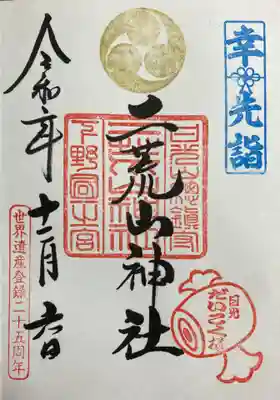 幸先詣
二荒山神社
日光総鎮守
二荒山神社
下野国一之宮
日光
だいこくさま
令和六年十二月六日
世界遺産登録二十五周年